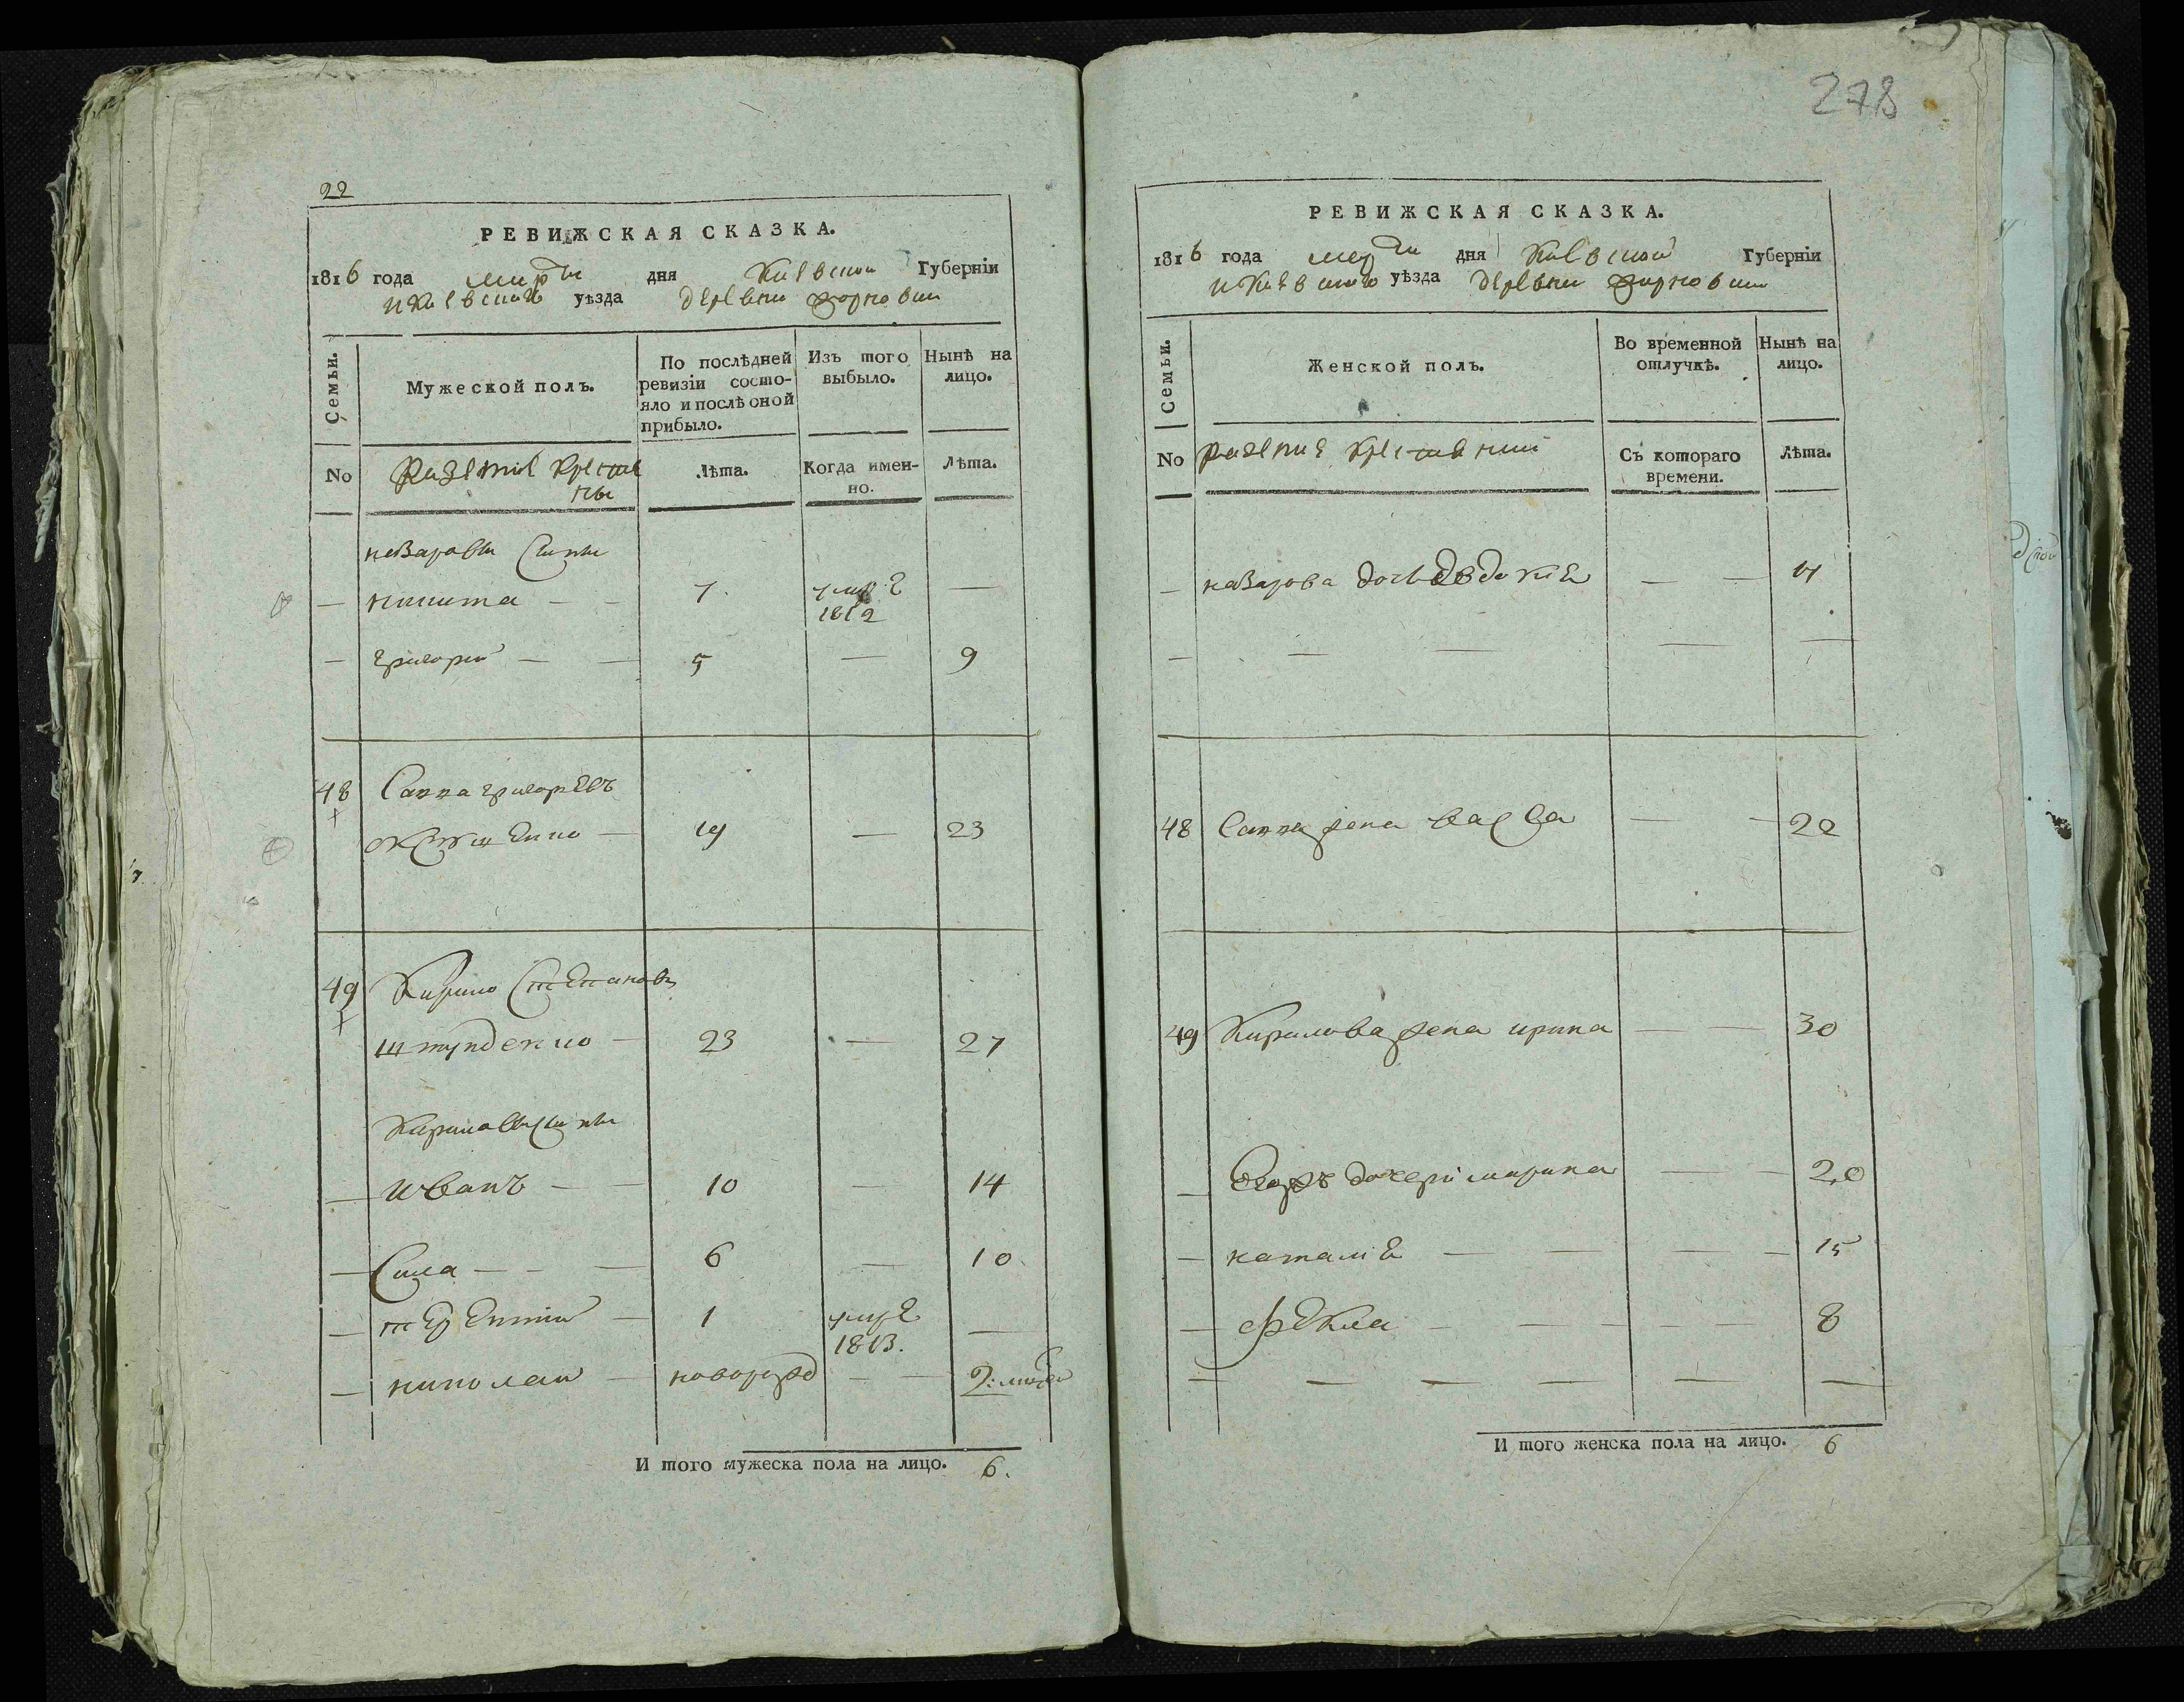 22
РЕВИЖСКАЯ СКАЗКА.
1816 года марта дня Киевской Губерніи
и Киевского уѣзда деревни
Семьи.
Мужеской полъ.
По послѣдней ревизіи состояло и послѣ оной прибыло.
Изъ того выбыло.
Нынѣ на лицо.
No
Лѣта.
Когда именно.
Лѣта.
назаровы сыны
— никита — — 7. умре 1812 —
— григорий — — 5 — 9
48 Сапва григориевъ
19 — 23
49 Кирило Степановъ
штунденко — 23 — 27
Кириловы сыны
— иванъ — — 10 — 14
— Сила — — — 6 — 10
— терентий — 1 умре 1813. —
— николай — новорожд — — 2:
И того мужеска пола на лицо. 6.
278
РЕВИЖСКАЯ СКАЗКА.
1816 года марта дня Киевской Губерніи
и Киевского уѣзда деревни
Семьи.
Женской полъ.
Во временной отлучкѣ.
Нынѣ на лицо.
No
Съ котораго времени.
Лѣта.
— назарова дочь евдокия — — 4
— — — — —
48 жена — — 22
49 Кирилова жена ирина — — 30
— Егожъ дочери марина — — 20
— наталия — — — — 15
— фекла — — — — — 8
— — — — — — —
И того женска пола на лицо. 6